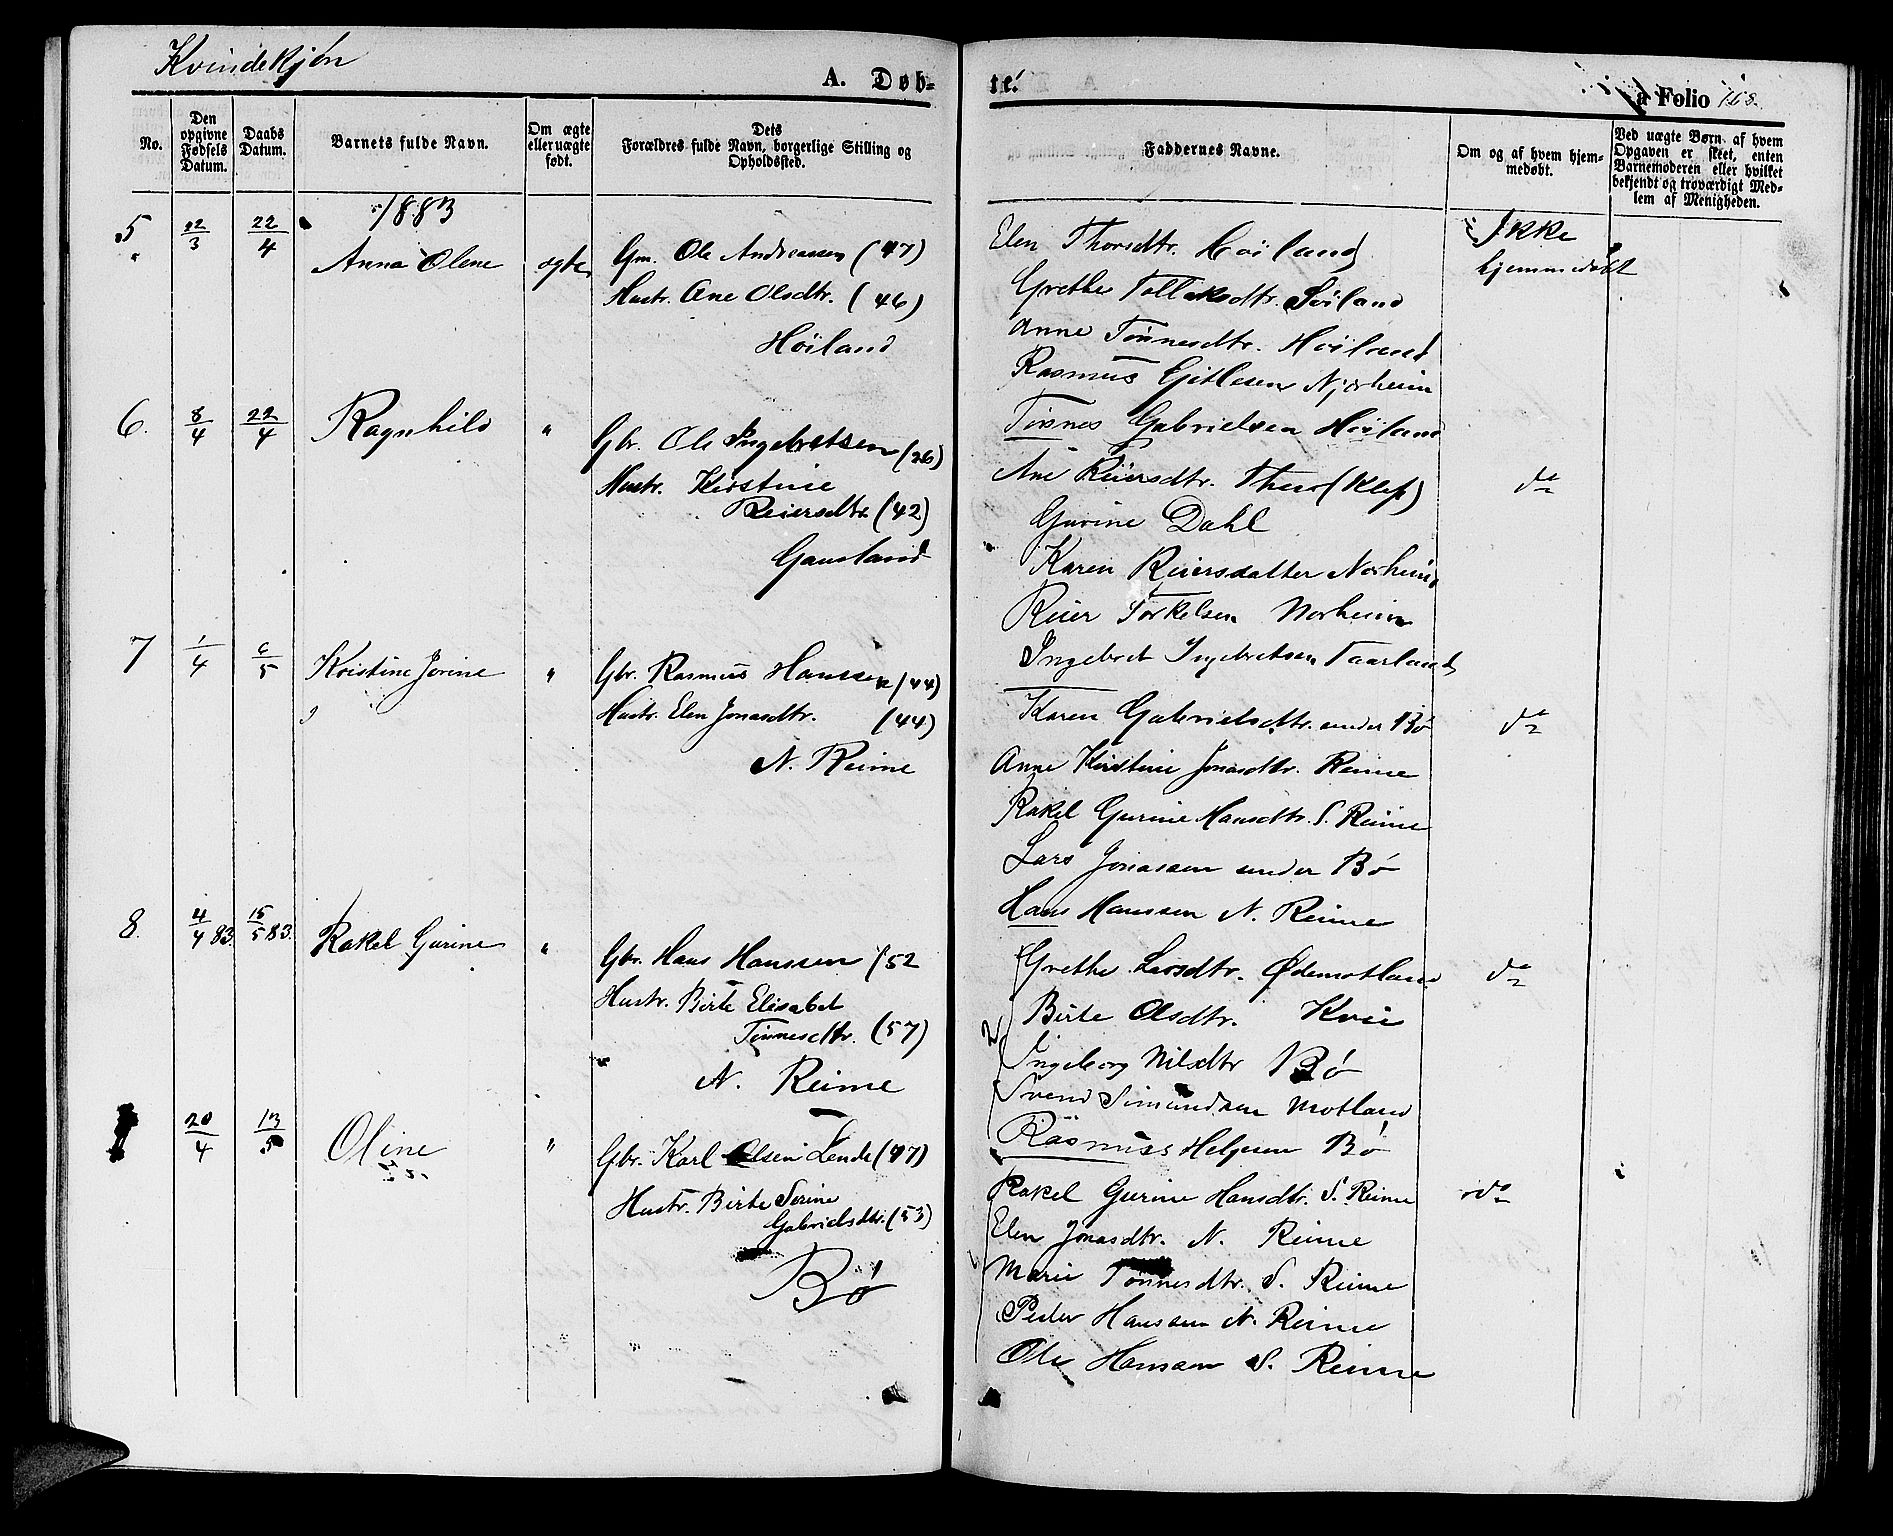 Kvindekjøn
A. Døb-
No.
Den opgivne Fødsels Datum.
Daabs Datum.
Barnets fulde Navn.
Om ægte eller uægte født.
Dets Forældres fulde Navn, borgerlige Stilling og Opholdssted.
1883
5 22/3 22/4 Anna Olene ægte Gm. Ole Andreassen (47)
Hustr. Ane Olsdtr. (46)
Høiland
6. 8/4 22/4 Ragnhild " Gbr. Ole Ingebretsen (26)
Hustr. Kirstine
Reiersdtr. (42)
Gausland
7 1/4 6/5 Kristine Jorine " Gbr. Rasmus Hanssen (44)
Hustr. Elen Jonasdtr. (44)
N. Reime
8. 4/4 83. 15/5 83. Rakel Gurine " Gbr. Hans Hanssen (52
Hustr. Birte Elisabet
Tønnesdtr. (57)
N. Reime
20/4 13/5 Oline " Gbr. Karl Olsen Lende (47)
Hustr. Birte Serine
Gabrielsdtr. (53)
Bø
te.
a Folio 168.
Faddernes Navne.
Om og af hvem hjem-
medøbt.
Ved uægte Børn. af hvem
Opgaven er skeet, enten
Barnemoderen eller hvilket
bekjendt og troværdigt Med-
lem af Menigheden.
Elen Thorsdtr. Høiland Ikke
hjemmedøbt
Grethe Tollaksdtr. Søiland
Anne Tønnesdtr. Høiland
Rasmus Gitlesen Njærheim
Tønnes Gabrielsen Høiland
Ane Reiersdtr. Thu (Klep) do
Gurine Dahl
Karen Reiersdatter Norheim
Reier Torkelsen Norheim
Ingebret Ingebretsen Taarland
Karen Gabrielsdtr. under Bø do
Anne Kirstine Jonasdtr. Reime
Rakel Gurine Hansdtr. S. Reime
Lars Jonassen under Bø
Hans Hanssen N. Reime
Grethe Larsdtr. Ødemotland do
Birte Olsdtr. Kvie
Ingeborg Nilsdtr Bø
Svend Simundsen Motland
Rasmus Helgesen Bø
Rakel Gurine Hansdtr. S. Reime do
Elen Jonasdtr. N. Reime
Marie Tønnesdtr. S. Reime
Peder Hanssen N. Reime
Ole Hansen S. Reime